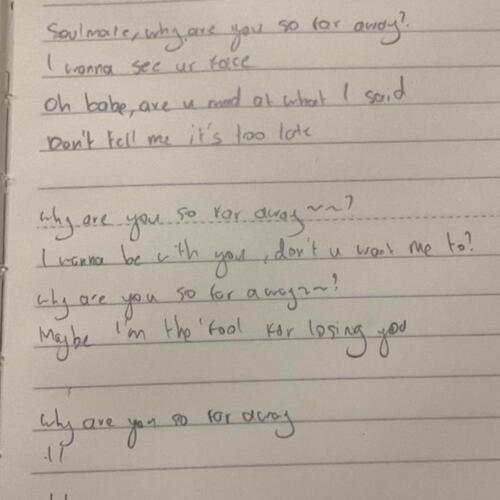 Soulmate, why are you so far away?
I wanna see ur face
Oh babe, are u mad at what I said
Don't tell me it's too late
Why are you so far away~~?
I wanna be with you, don't u want me to?
Why are you so far away~~?
Maybe I'm the fool for losing you
Why are you so far away